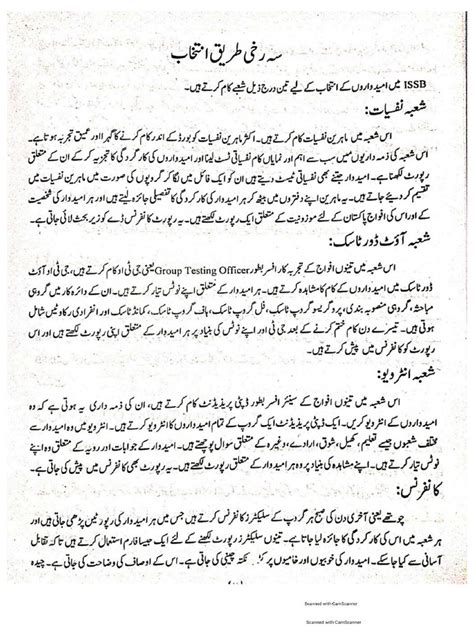 سہ رخی طریق انتخاب
ISSB میں امیدواروں کے انتخاب کے لیے تین درج ذیل شعبے کام کرتے ہیں۔
شعبہ نفسیات:
اس شعبہ میں ماہرین نفسیات کام کرتے ہیں۔ اکثر ماہرین نفسیات کو بورڈ کے اندر کام کرنے کا گہرا اور عمیق تجربہ ہوتا ہے۔
اس شعبہ کی ذمہ داریوں میں سب سے اہم اور نمایاں کام نفسیاتی ٹسٹ لینا اور امیدواروں کی کارگردگی کا تجزیہ کر کے ان کے متعلق
رپورٹ لکھنا ہے۔ امیدوار جتنے بھی نفسیاتی ٹیسٹ دیتے ہیں ان کو ایک فائل میں لگا کر گروپوں کی صورت میں ماہرین نفسیات میں
تقسیم کر دیئے جاتے ہیں۔ یہ ماہرین اپنے دفتروں میں بیٹھ کر ہر امیدوار کی کارکردگی کا تفصیلی جائزہ لیتے اور ہر امیدوار کی شخصیت
کے اور اس کی افواج پاکستان کے لئے موزونیت کے متعلق ایک رپورٹ لکھتے ہیں۔ یہ رپورٹ کانفرنس ڈے کو زیر بحث لائی جاتی ہے۔
شعبہ آؤٹ ڈور ٹاسک:
اس شعبہ میں تینوں افواج کے تجربہ کار افسر بطور Group Testing Officer یعنی جی ٹی او کام کرتے ہیں، جی ٹی او آؤٹ
ڈور ٹاسک میں امیدواروں کے کام کا مشاہدہ کرتے ہیں۔ اور ہر امیدوار کے متعلق اپنے نوٹس تیار کرتے ہیں۔ ان کے دائرہ کار میں گروہی
مباحثہ، گروہی منصوبہ بندی، پروگریسو گروپ ٹاسک، فل گروپ ٹاسک، ہاف گروپ ٹاسک، کمانڈ ٹاسک اور انفرادی رکاوٹیں شامل
ہوتی ہیں۔ تیسرے دن کام ختم کرنے کے بعد جی ٹی او اپنے نوٹس کی بنیاد پر ہر امیدوار کے متعلق اپنی رپورٹ لکھتے ہیں اور اس
رپورٹ کو کانفرنس میں پیش کرتے ہیں۔
شعبہ انٹرویو:
اس شعبہ میں تینوں افواج کے سینئر افسر بطور ڈپٹی پریذیڈنٹ کام کرتے ہیں، ان کی ذمہ داری یہ ہوتی ہے کہ وہ
امیدواروں کے انٹرویو کریں۔ ایک ڈپٹی پریذیڈنٹ ایک گروپ کے تمام امیدواروں کا انٹرویو کرتے ہیں۔ انٹرویو میں وہ امیدوار سے
مختلف شعبوں جیسے تعلیم، کھیل، شوق، ارادے، وغیرہ کے متعلق سوال پوچھتے ہیں۔ اور امیدوار کے جوابات اور رویہ کے متعلق اپنے
نوٹس تیار کرتے ہیں۔ اپنے مشاہدہ کی بنیاد پر وہ ہر امیدوار کے متعلق رپورٹ لکھتے ہیں۔ یہ رپورٹ بھی کانفرنس میں پیش کی جاتی ہے۔
کانفرنس:
چوتھے یعنی آخری دن کی صبح ہر گروپ کے سلیکٹرز کانفرنس کرتے ہیں جس میں ہر امیدوار کی رپورٹیں پڑھی جاتی ہیں اور
ہر شعبہ میں اس کی کارگردگی کا جائزہ لیا جاتا ہے۔ دوران کانفرنس تینوں سلیکٹرز رپورٹ کرنے کے لئے ایک جیسا فارم استعمال کرتے ہیں تاکہ تقابل
آسانی سے کیا جا سکے۔ امیدوار کی خوبیوں اور خامیوں پر نکتہ چینی کی جاتی ہے۔ اس کے اوصاف کی وضاحت کی جاتی ہے۔ چیدہ
Scanned with CamScanner
Scanned with CamScanner